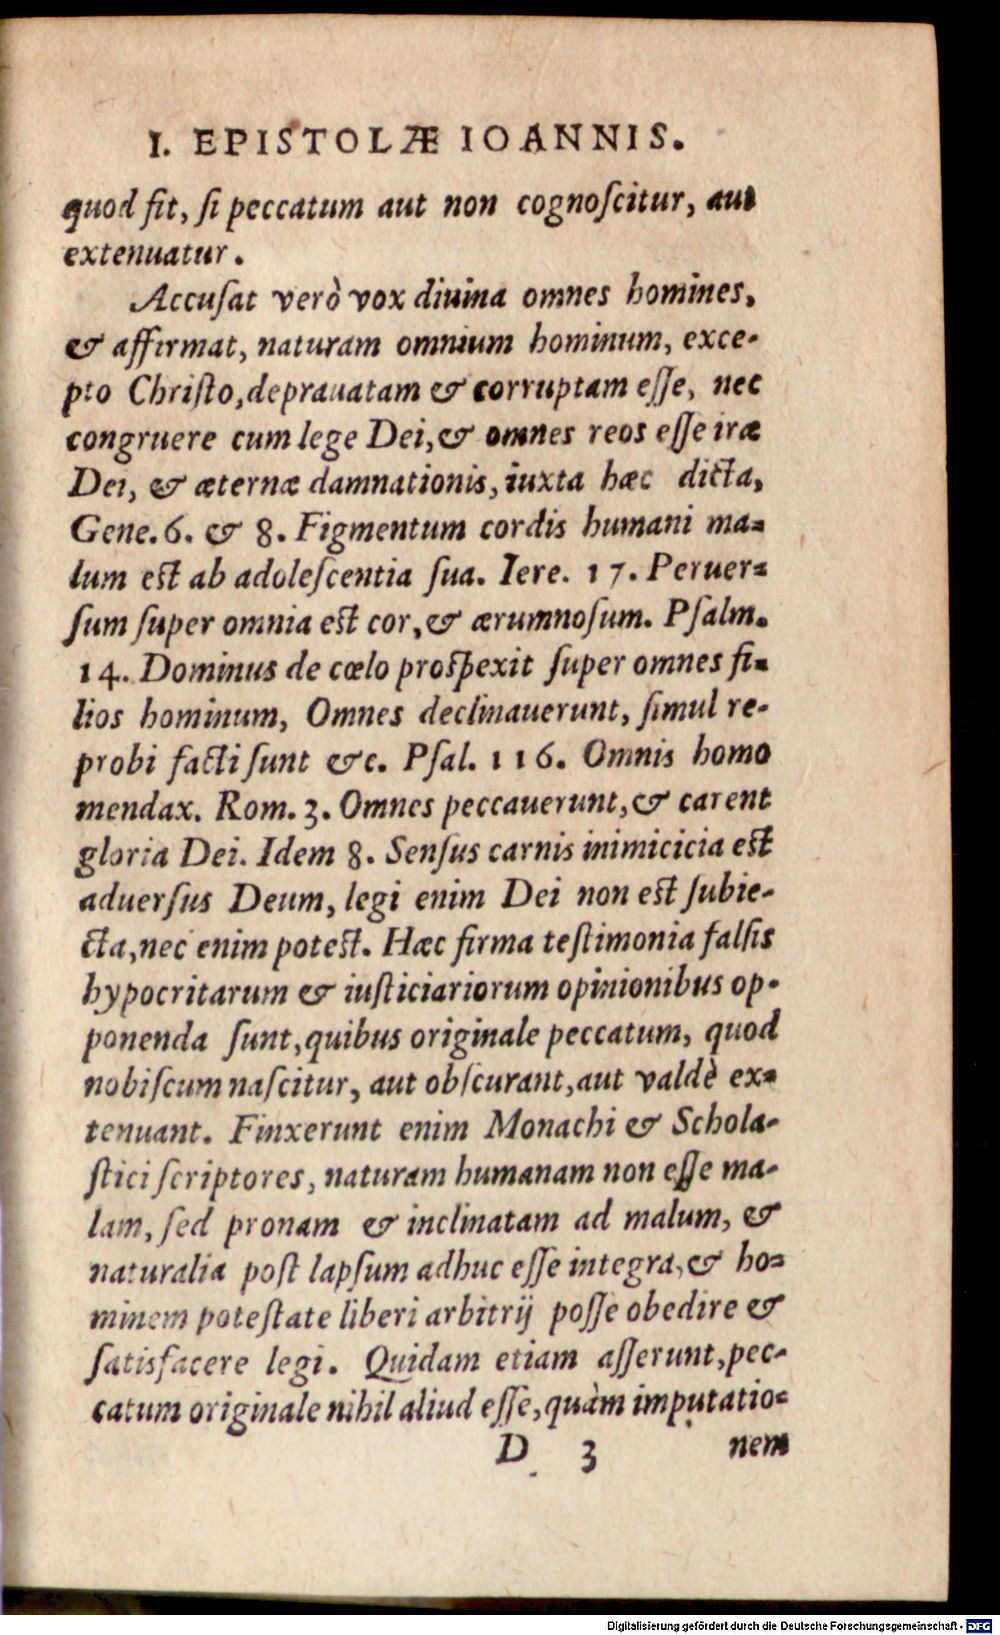 I. EPISTOLÆ IOANNIS.
quod fit, ſi peccatum aut non cognoſcitur, aut
extenuatur.
Accuſat verò vox diuina omnes homines,
& affirmat, naturam omnium hominum, exce-
pto Chriſto, deprauatam & corruptam eſſe, nec
congruere cum lege Dei, & omnes reos eſſe iræ
Dei, & æternæ damnationis, iuxta hæc dicta,
Gene. 6. & 8. Figmentum cordis humani ma-
lum eſt ab adoleſcentia ſua. Iere. 17. Peruer-
ſum ſuper omnia eſt cor, & ærumnoſum. Pſalm.
14. Dominus de cœlo proſpexit ſuper omnes fi-
lios hominum, Omnes declinauerunt, ſimul re-
probi facti ſunt &c. Pſal. 116. Omnis homo
mendax. Rom. 3. Omnes peccauerunt, & carent
gloria Dei. Idem 8. Senſus carnis inimicicia eſt
aduerſus Deum, legi enim Dei non eſt ſubie-
cta, nec enim poteſt. Hæc firma teſtimonia falſis
hypocritarum & iuſticiariorum opinionibus op-
ponenda ſunt, quibus originale peccatum, quod
nobiſcum naſcitur, aut obſcurant, aut valdè ex-
tenuant. Finxerunt enim Monachi & Schola-
ſtici ſcriptores, naturam humanam non eſſe ma-
lam, ſed pronam & inclinatam ad malum, &
naturalia poſt lapſum adhuc eſſe integra, & ho-
minem poteſtate liberi arbitrij poſſe obedire &
ſatisfacere legi. Quidam etiam aſſerunt, pec-
catum originale nihil aliud eſſe, quàm imputatio-
D 3 nem
Digitalisierung gefördert durch die Deutsche Forschungsgemeinschaft - DFG